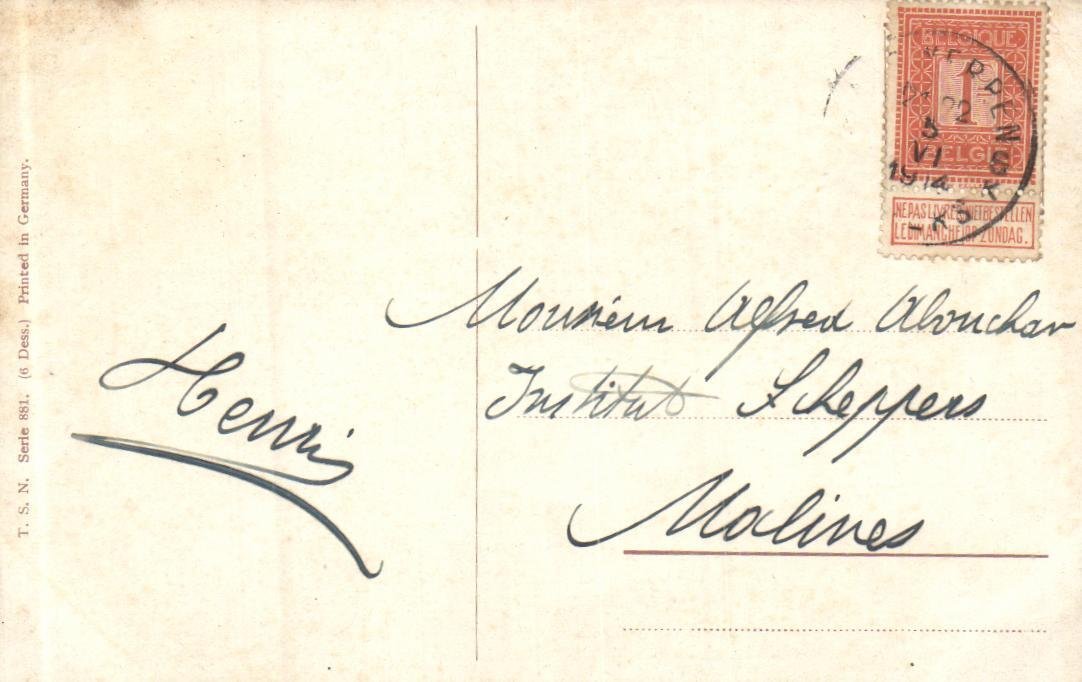 T. S. N. Serie 881. (6 Dess.) Printed in Germany.
BELGIQUE
1
BELGIË
NE PAS LIVRER NIET BESTELLEN
LE DIMANCHE OP ZONDAG.
5
VI
1914
Henri
Monsieur Alfred Abouchar
Institut Scheppers
Malines